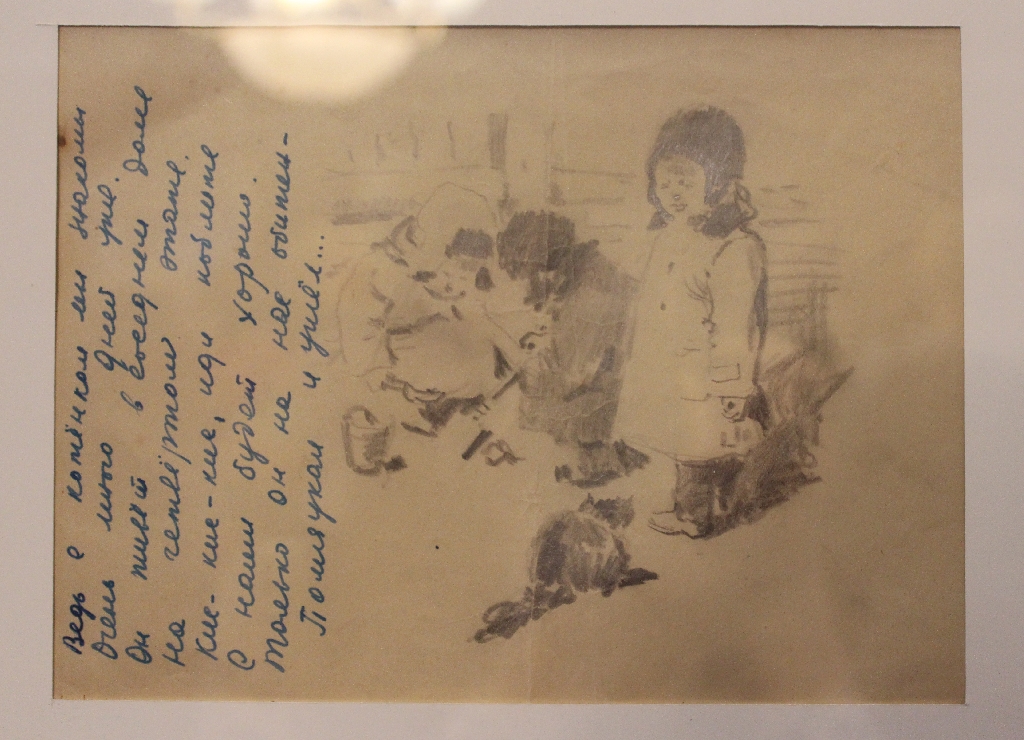 Ведь с котёнком мы знакомы
Очень много дней уже.
Он живёт в соседнем доме
На четвёртом этаже.
Кис-кис-кис, иди поближе
С нами будет хорошо.
Только он на нас обижен-
Помяукал и ушёл...